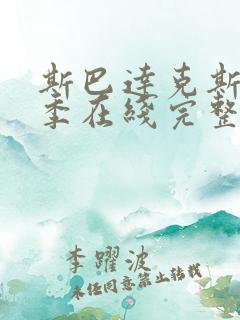 斯巴达克斯
季在线完整
李躍波
未经同意禁止转载